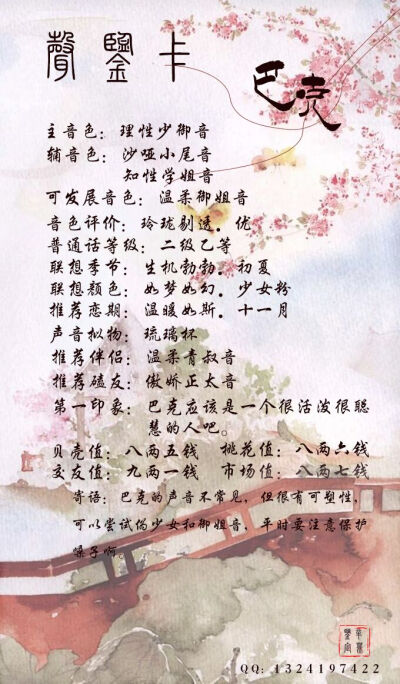 聲鑒卡
巴克
主音色：理性少御音
辅音色：沙哑小尾音
知性学姐音
可发展音色：温柔御姐音
音色评价：玲珑剔透。优
普通话等级：二级乙等
联想季节：生机勃勃。初夏
联想颜色：如梦如幻。少女粉
推荐恋期：温暖如斯。十一月
声音拟物：琉璃杯
推荐伴侣：温柔青叔音
推荐磕友：傲娇正太音
第一印象：巴克应该是一个很活泼很聪
慧的人吧。
贝壳值：八两五钱 桃花值：八两六钱
交友值：九两一钱 市场值：八两七钱
寄语：巴克的声音不常见，但很有可塑性，
可以尝试伪少女和御姐音，平时要注意保护
嗓子啊。
QQ：1324197422